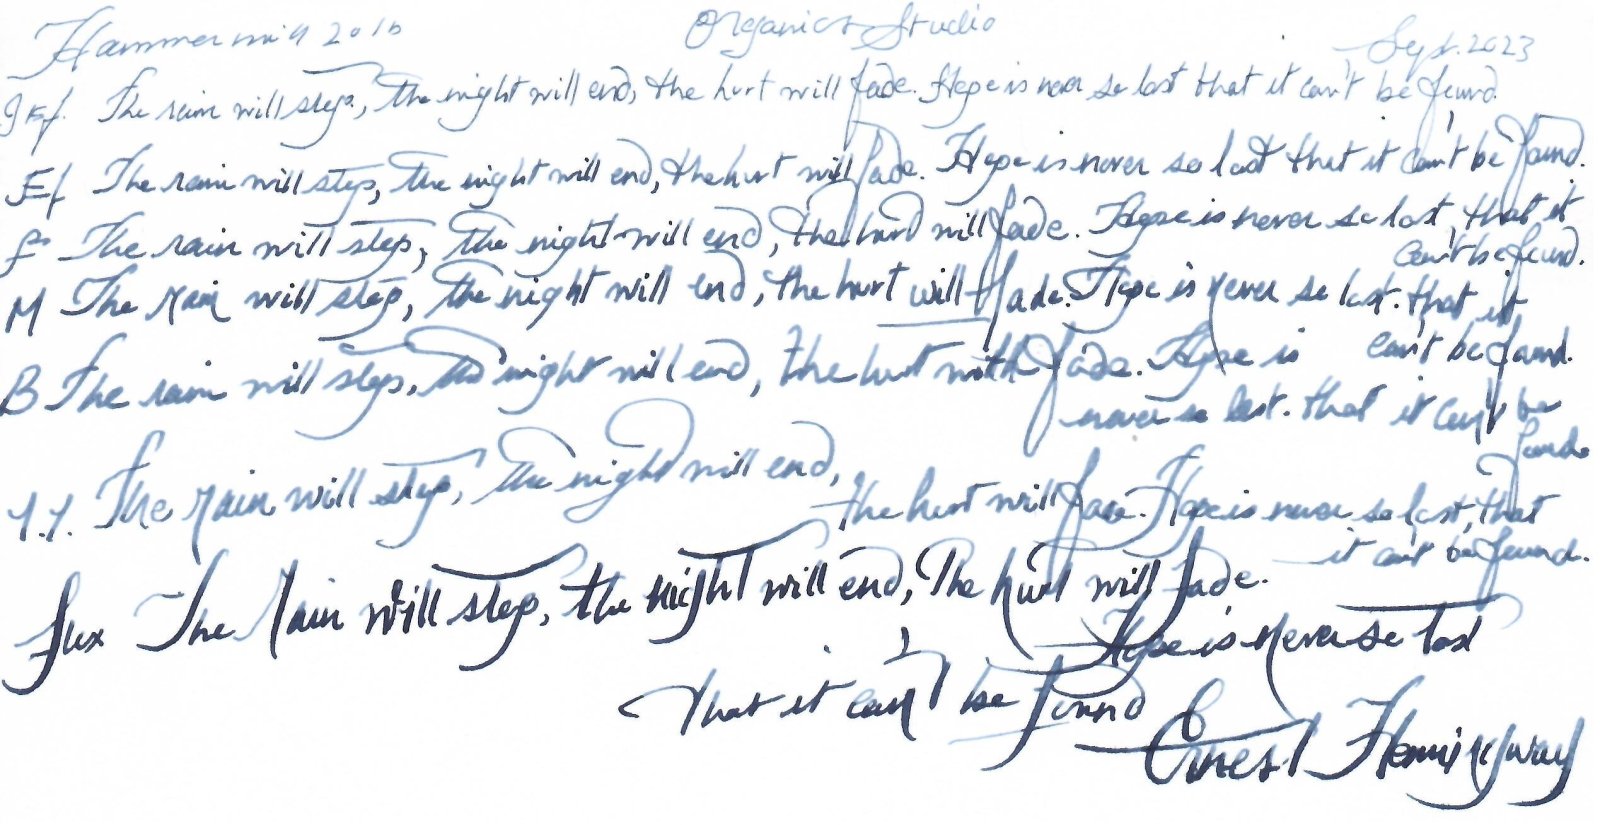 Hammermill 2010 Organics Studio Sept. 2023
JEf. The rain will stop, the night will end, the hurt will fade. Hope is never so lost that it can't be found.
Ef The rain will stop, the night will end, the hurt will fade. Hope is never so lost that it can't be found.
F The rain will stop, the night will end, the hurt will fade. Hope is never so lost, that it
can't be found.
M The rain will stop, the night will end, the hurt will fade. Hope is never so lost. that it
can't be found.
B The rain will stop, the night will end, the hurt will fade. Hope is
never so lost. that it can't be
found.
1.1. The rain will stop, the night will end,
the hurt will fade. Hope is never so lost, that
it can't be found.
flex The rain will stop, the night will end, The hurt will fade.
Hope is never so lost
that it can't be found
Ernest Hemingway